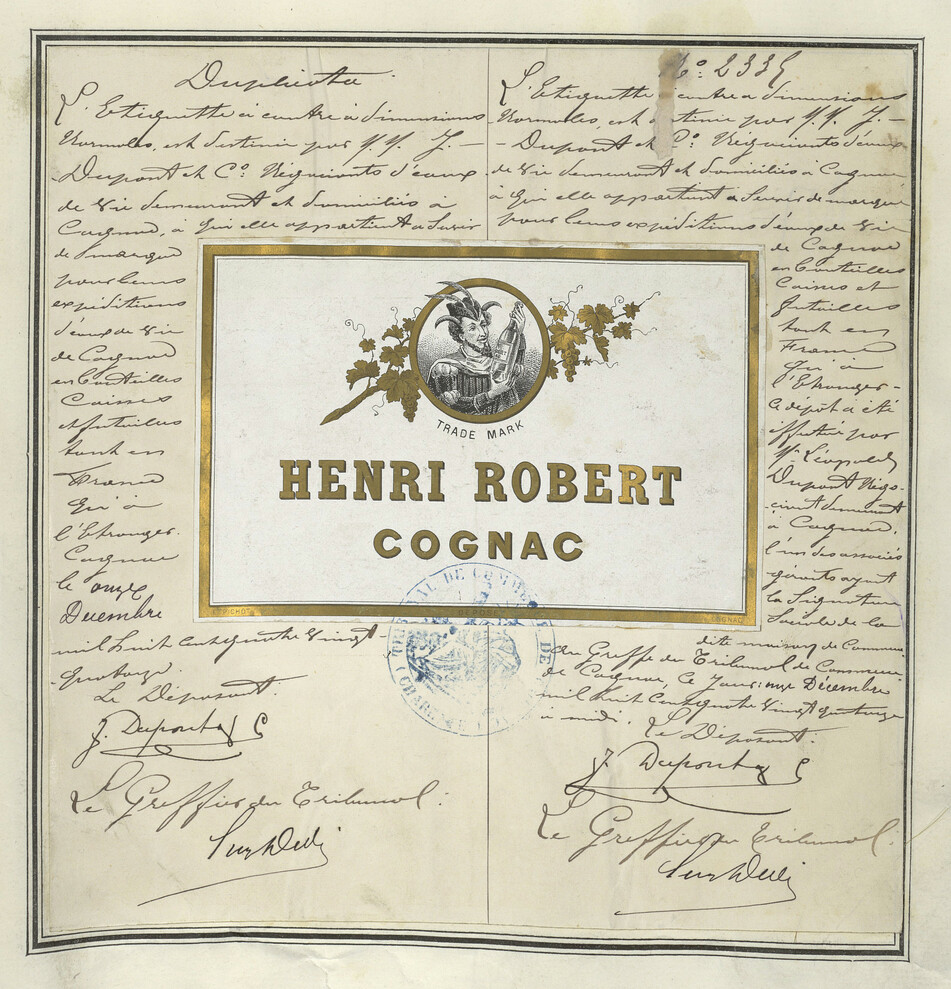 Duplicata.
L'Etiquette ci contre à dimensions
Normales, est destinée par M.M. J.
Dupont et Cº. Négociants d'eaux
de Vie demeurant et domiciliés à
Cognac, à qui elle appartient à Servir
de marque
pour leurs
expéditions
d'eaux de Vie
de Cognac
en bouteilles
Caisses
et futailles
tant en
France
qu'à
l'Etranger.
Cognac
le onze
Décembre
mil huit cent quatre vingt
quatorze
Le Déposant.
J. Dupont & C
Le Greffier du Tribunal:
Nº. 2335
L'Etiquette ci contre à dimensions
Normales, est destinée par M.M. J.
Dupont et Cº. Négociants d'eaux
de Vie demeurant et domiciliés à Cognac
à qui elle appartient à Servir de marque
pour leurs expéditions d'eaux de Vie
de Cognac
en bouteilles
Caisses et
futailles
tant en
France
qu'à
l'Etranger
Ce dépôt a été
effectué par
Mr. Léopold
Dupont Négo-
ciant demeurant
à Cognac,
l'un des associés
gérants ayant
la Signature
Sociale de la
dite maison de Commerce
au Greffe du Tribunal de Commerce
de Cognac, Ce jour: onze Décembre
mil huit cent quatre vingt quatorze
à midi.
Le Déposant:
J. Dupont & C
Le Greffier du Tribunal.
TRADE MARK
HENRI ROBERT
COGNAC
DÉPOSÉ
COGNAC
TRIBUNAL DE COMMERCE DE